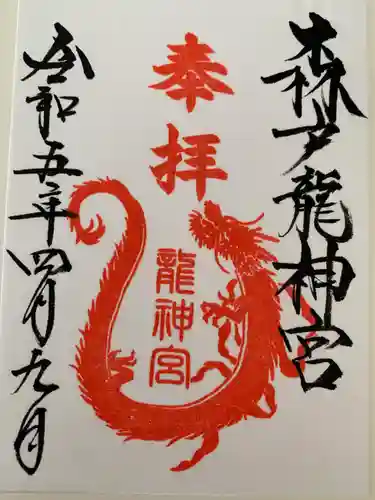 森戸龍神宮
奉拝
龍神宮
令和五年四月九月